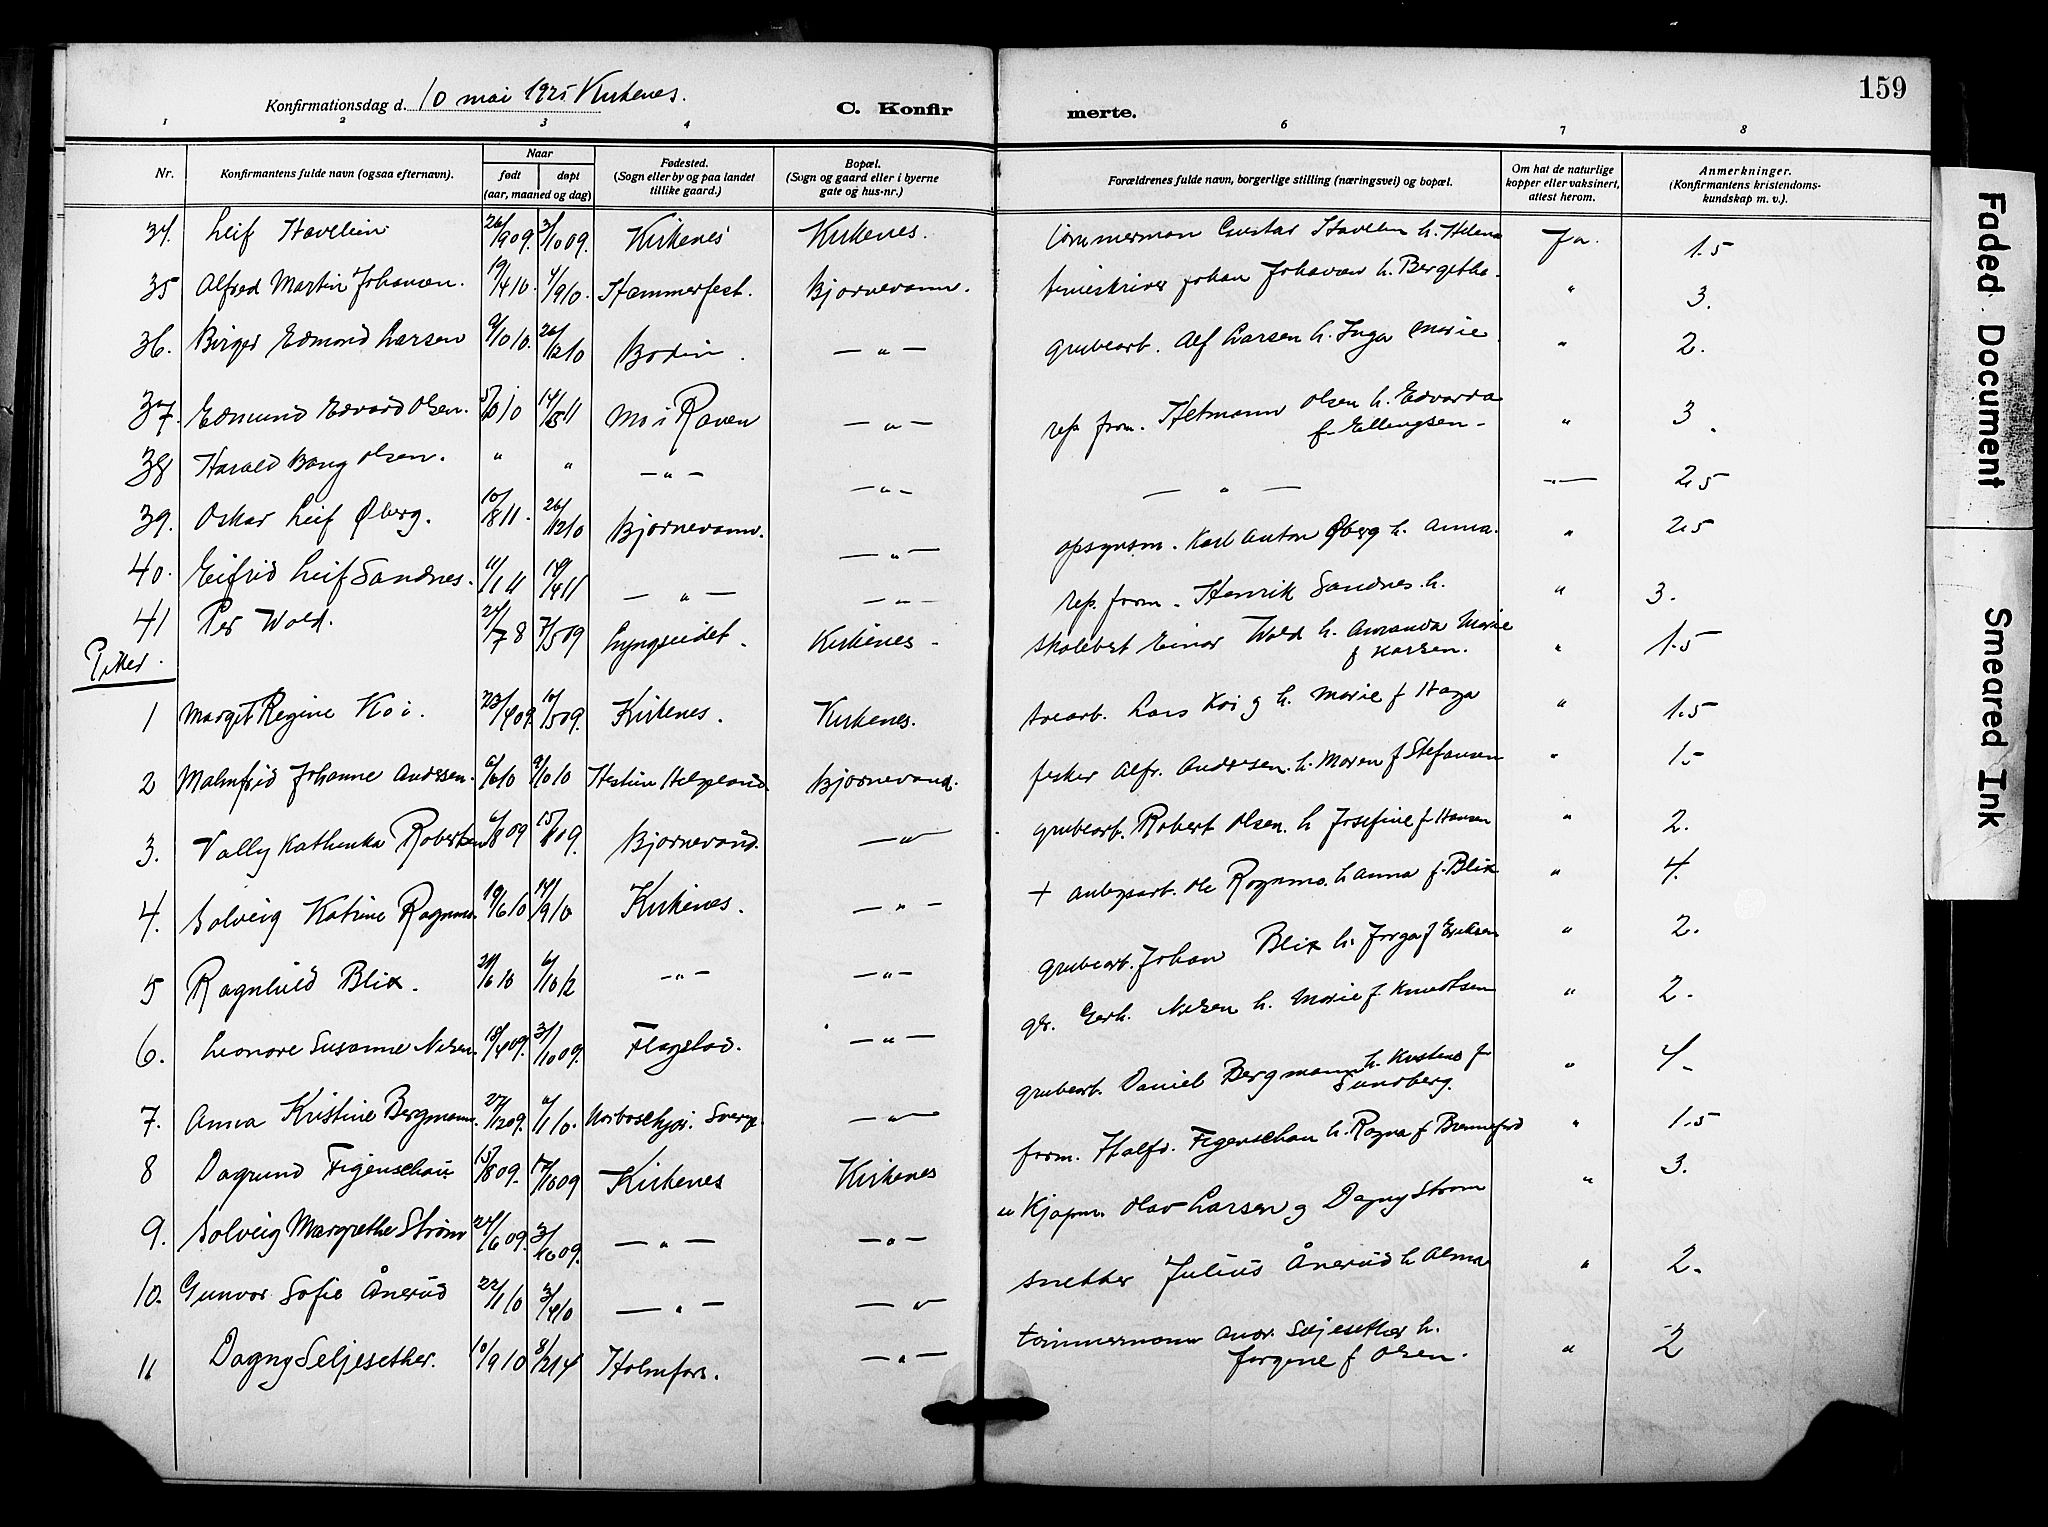 159
Konfirmationsdag d. 10 mai 1925 Kirkenes.
C. Konfirmerte.
1 2 3 4 5 6 7 8
Nr.
Konfirmantens fulde navn (ogsaa efternavn).
Naar
født døpt
(aar, maaned og dag)
Fødested.
(Sogn eller by og paa landet
tillike gaard.)
Bopæl.
(Sogn og gaard eller i byerne
gate og hus-nr.)
Forældrenes fulde navn, borgerlige stilling (næringsvei) og bopæl.
Om hat de naturlige
kopper eller vaksinert,
attest herom.
Anmerkninger.
(Konfirmantens kristendoms-
kundskap m. v.)
34. Leif 26/9 09. 3/10 09. Kirkenes Kirkenes. Gustav h. Helena Ja. 1.5
35 Alfred Martin Johansen. 19/4 10. 4/9 10. Hammerfest. Bjørnevann. Johan Johansen h. Bergetha. " 3.
36. Birger Edmond Larsen 9/10 10. 26/12 10 Bodin. — " — grubearb. Alf Larsen h. Inga Marie " 2.
37. Edmund Edvard Olsen. 5/10 10 14/5 11 Mo i Ranen — " — rep. form. Hetmann Olsen h. Edvarda
f. Ellengsen - " 3.
38 Harald Bang Olsen. " " — " — — " — — " — — " — 2.5
39. Oskar Leif Øberg. 10/8 11. 26/12 10 Bjørnevann. — " — opsynsm. Karl Anton Øberg h. Anna. " 2.5
40. Eifrid Leif Sandnes. 11/1 11 19/4 11 — " — — " — rep. form. Henrik Sandnes h. " 3.
41 Per Wold. 24/7 8 7/5 09 Lyngseidet. Kirkenes - skolebest Einar Wold h. Amanda Marie
f " 1.5
Piker.
1 Marget Regine Koi. 23/4 09. 10/5 09. Kirkenes. Kirkenes. Lars Koi g h. Marie f Haga " 1.5
2 Malmfrid Johanne Andersen. 6/6 10 9/10 10 Helgeland. Bjørnevand. fisker Alfr. Andersen. h. Maren f Stefansen " 1.-
3. Vally Kathinka Robertsen 6/8 09 15/ 09. Bjørnevand. — " — grubearb. Robert Olsen. h Josefine f Hansen " 2.
4. Solveig Katrine Rognmo. 19/6 10 14/9 10 Kirkenes. — " — + anlegsarb. Ole Rognmo. h Anna f. Blix " 4.
5 Ragnhild Blix. 6 10 6/10 12 — " — — " — grubearb. Johan Blix h. Jorga f Eriksen " 2.
6. Leonore Susanne Nilsen 18/4 09. 3/10 09. Flagstad. — " — gr. Gerh. Nilsen h. Marie f. Knudtsen " 2.
7. Anna Kristine Bergmann. 27/12 09. 1 10. Sverge. — " — grubearb. Daniel Bergmann h. f
Sundberg. " 4.
8 Dagrund Figenschau 15/8 09. 17/10 09 Kirkenes Kirkenes form. Halfd. Figenschau h. Ragna f " 1.5
9. Solveig Margrethe Strøm 24/6 09. 3/10 09. — " — — " — u Kjøpm. Olav Larsen g Dagny Strøm " 3.
10. Gunvor Sofie Ånerud 22/1 10 3/4 10 — " — — " — snekker Julius Ånerud h Alma " 2.
11 Dagny Seljesether. 10/9 10 8/2 14 Holmfors. — " — tømmermann Andr. Seljesether h.
Jørgine f Olsen. " 2
Faded Document
Smeared Ink